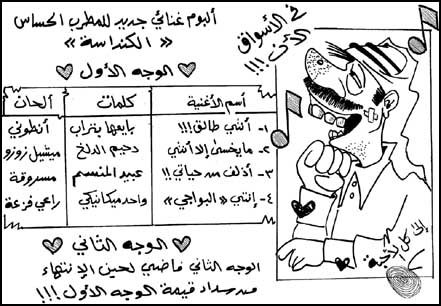 ألبوم غنائي جديد للمطرب الحساس
« الكنداسة »
في الأسواق
الآن !!!
الوجه الأول
أسم الأغنية كلمات ألحان
١- أنتي طالق!!! بايعها بتراب أنطوني
٢- ما يخسى إلا أنتي دحيم الدلخ ميتشيل زوزو
٣- أذلف من حياتي!! عبيد المنسم مسروقة
٤- إنتي « البواجي » واحد ميكانيكي راعي فزعة
الوجه الثاني
الوجه الثاني فاضي لحين الإنتهاء
من سداد قيمة الوجه الأول !!!
إلى كل